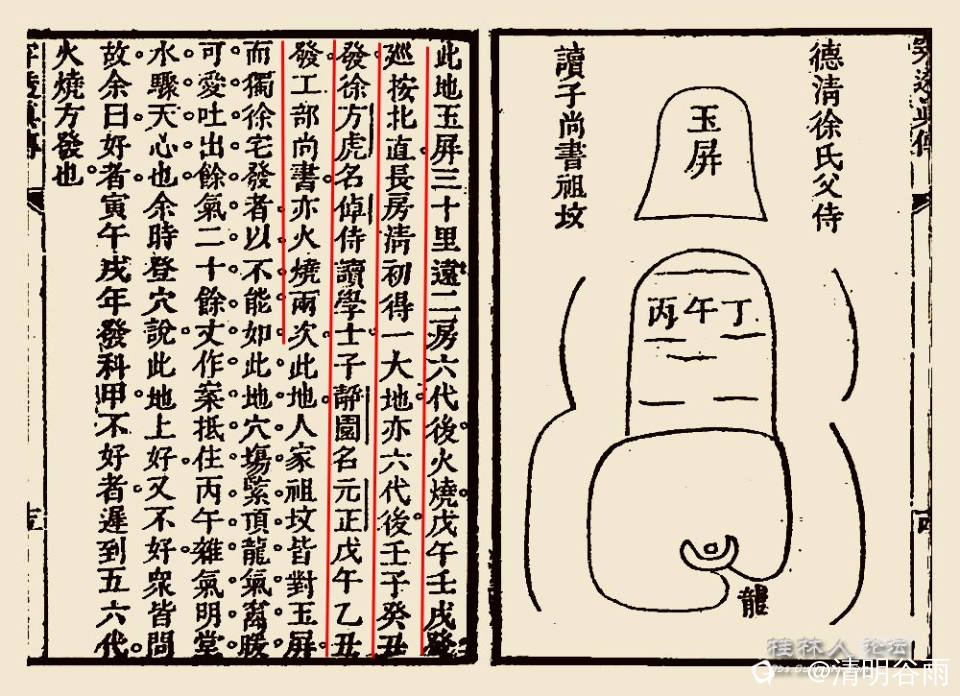 德清徐氏父侍
讀子尚書祖坟
玉屏
丙午丁
龍
此地玉屏三十里遠二房六代後火燒戊午壬戌發
廵按北直長房清初得一大地亦六代後壬子癸丑
發徐方虎名倬侍讀學士子靜園名元正戊午乙丑
發工部尚書亦火燒兩次此地人家祖坟皆對玉屏
而獨徐宅發者以不能如此地穴塲緊頂龍氣髙暖
可愛吐出餘氣二十餘丈作案抵住丙午雜氣明堂
水驟天心也余時登穴說此地上好又不好衆皆問
故余曰好者寅午戌年發科甲不好者遲到五六代
火燒方發也
桂林人论坛
@清明谷雨